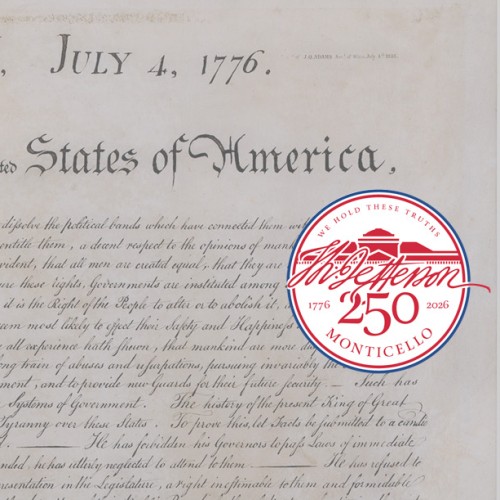 , JULY 4, 1776.
ted States of America,
dissolve the political bands which have connected them with
entitle them, a decent respect to the opinions of mank
vident, that all men are created equal, that they are
ure these rights, Governments are instituted among
it is the Right of the People to alter or to abolish it,
eem most likely to effect their Safety and Happiness
all experience hath shewn, that mankind are more
long train of abuses and usurpations, pursuing invariably the
ment, and to provide new Guards for their future security. — Such has
Systems of Government. The history of the present King of Great
Tyranny over these States. To prove this, let Facts be submitted to a candid
— He has forbidden his Governors to pass Laws of immediate
nded, he has utterly neglected to attend to them. — He has refused to
presentation in the Legislature, a right inestimable to them and formidable
WE HOLD THESE TRUTHS
Th. Jefferson
1776 250 2026
MONTICELLO